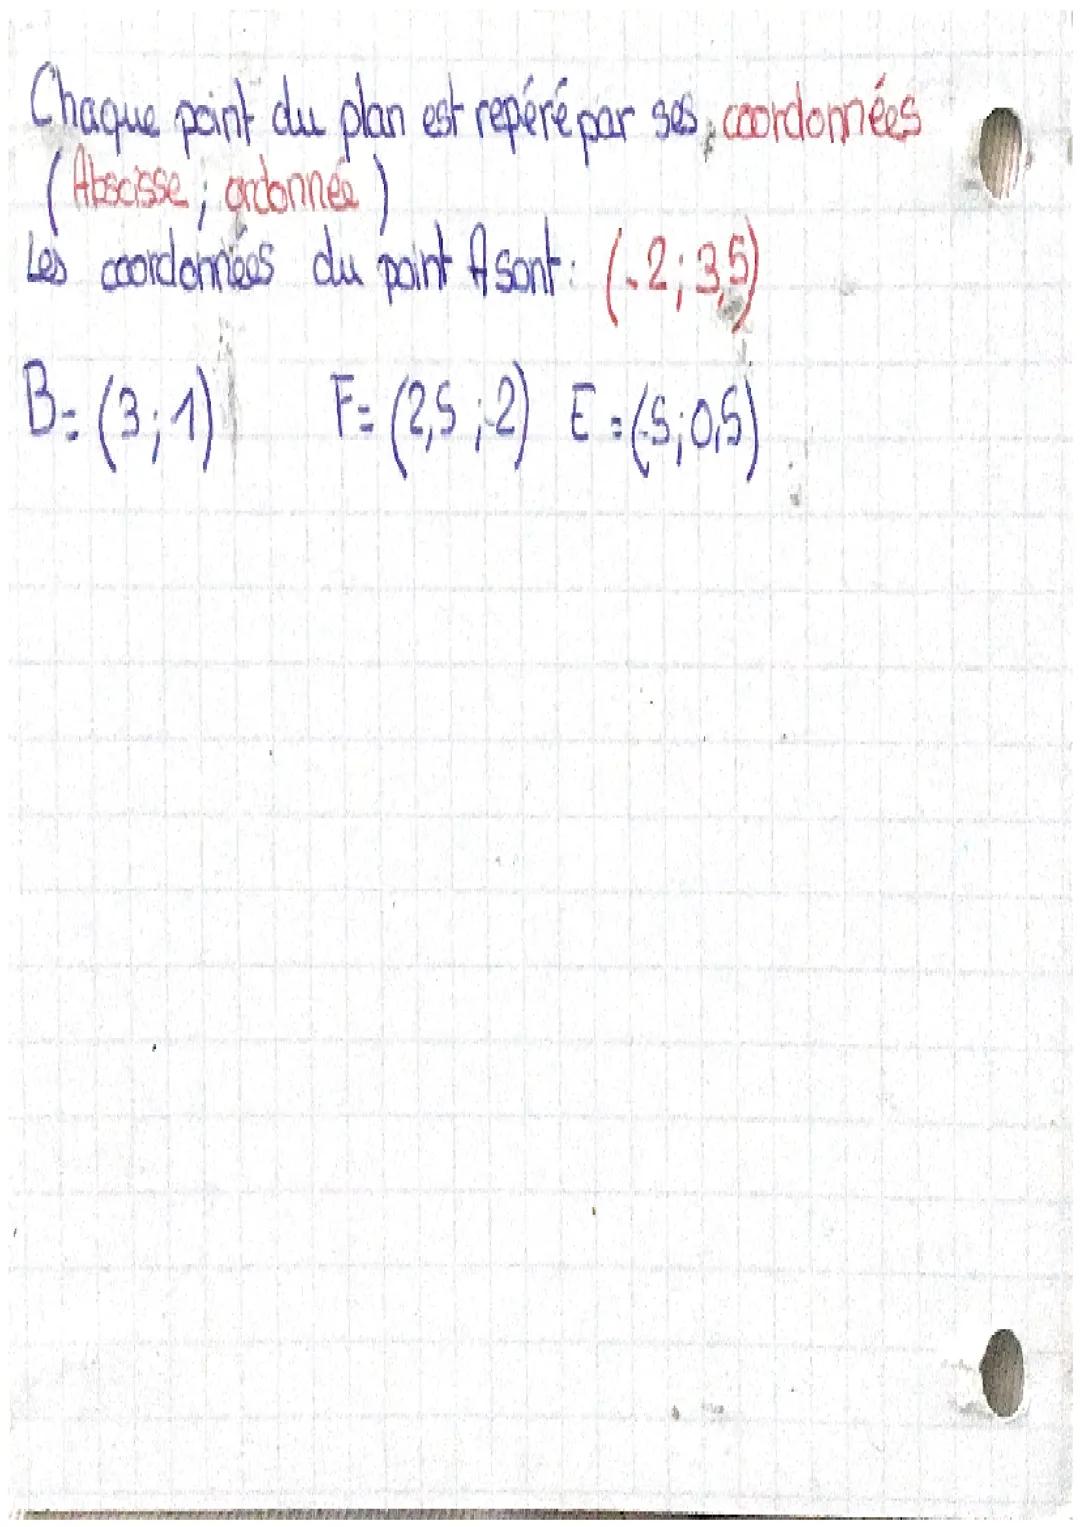 Chaque point du plan est repéré par ses coordonnées
(Abscisse ; ordonnée)
Les coordonnées du point A sont : (-2 ; 3,5)
B = (3 ; 1) F = (2,5 ; -2) E = (-5 ; 0,5)